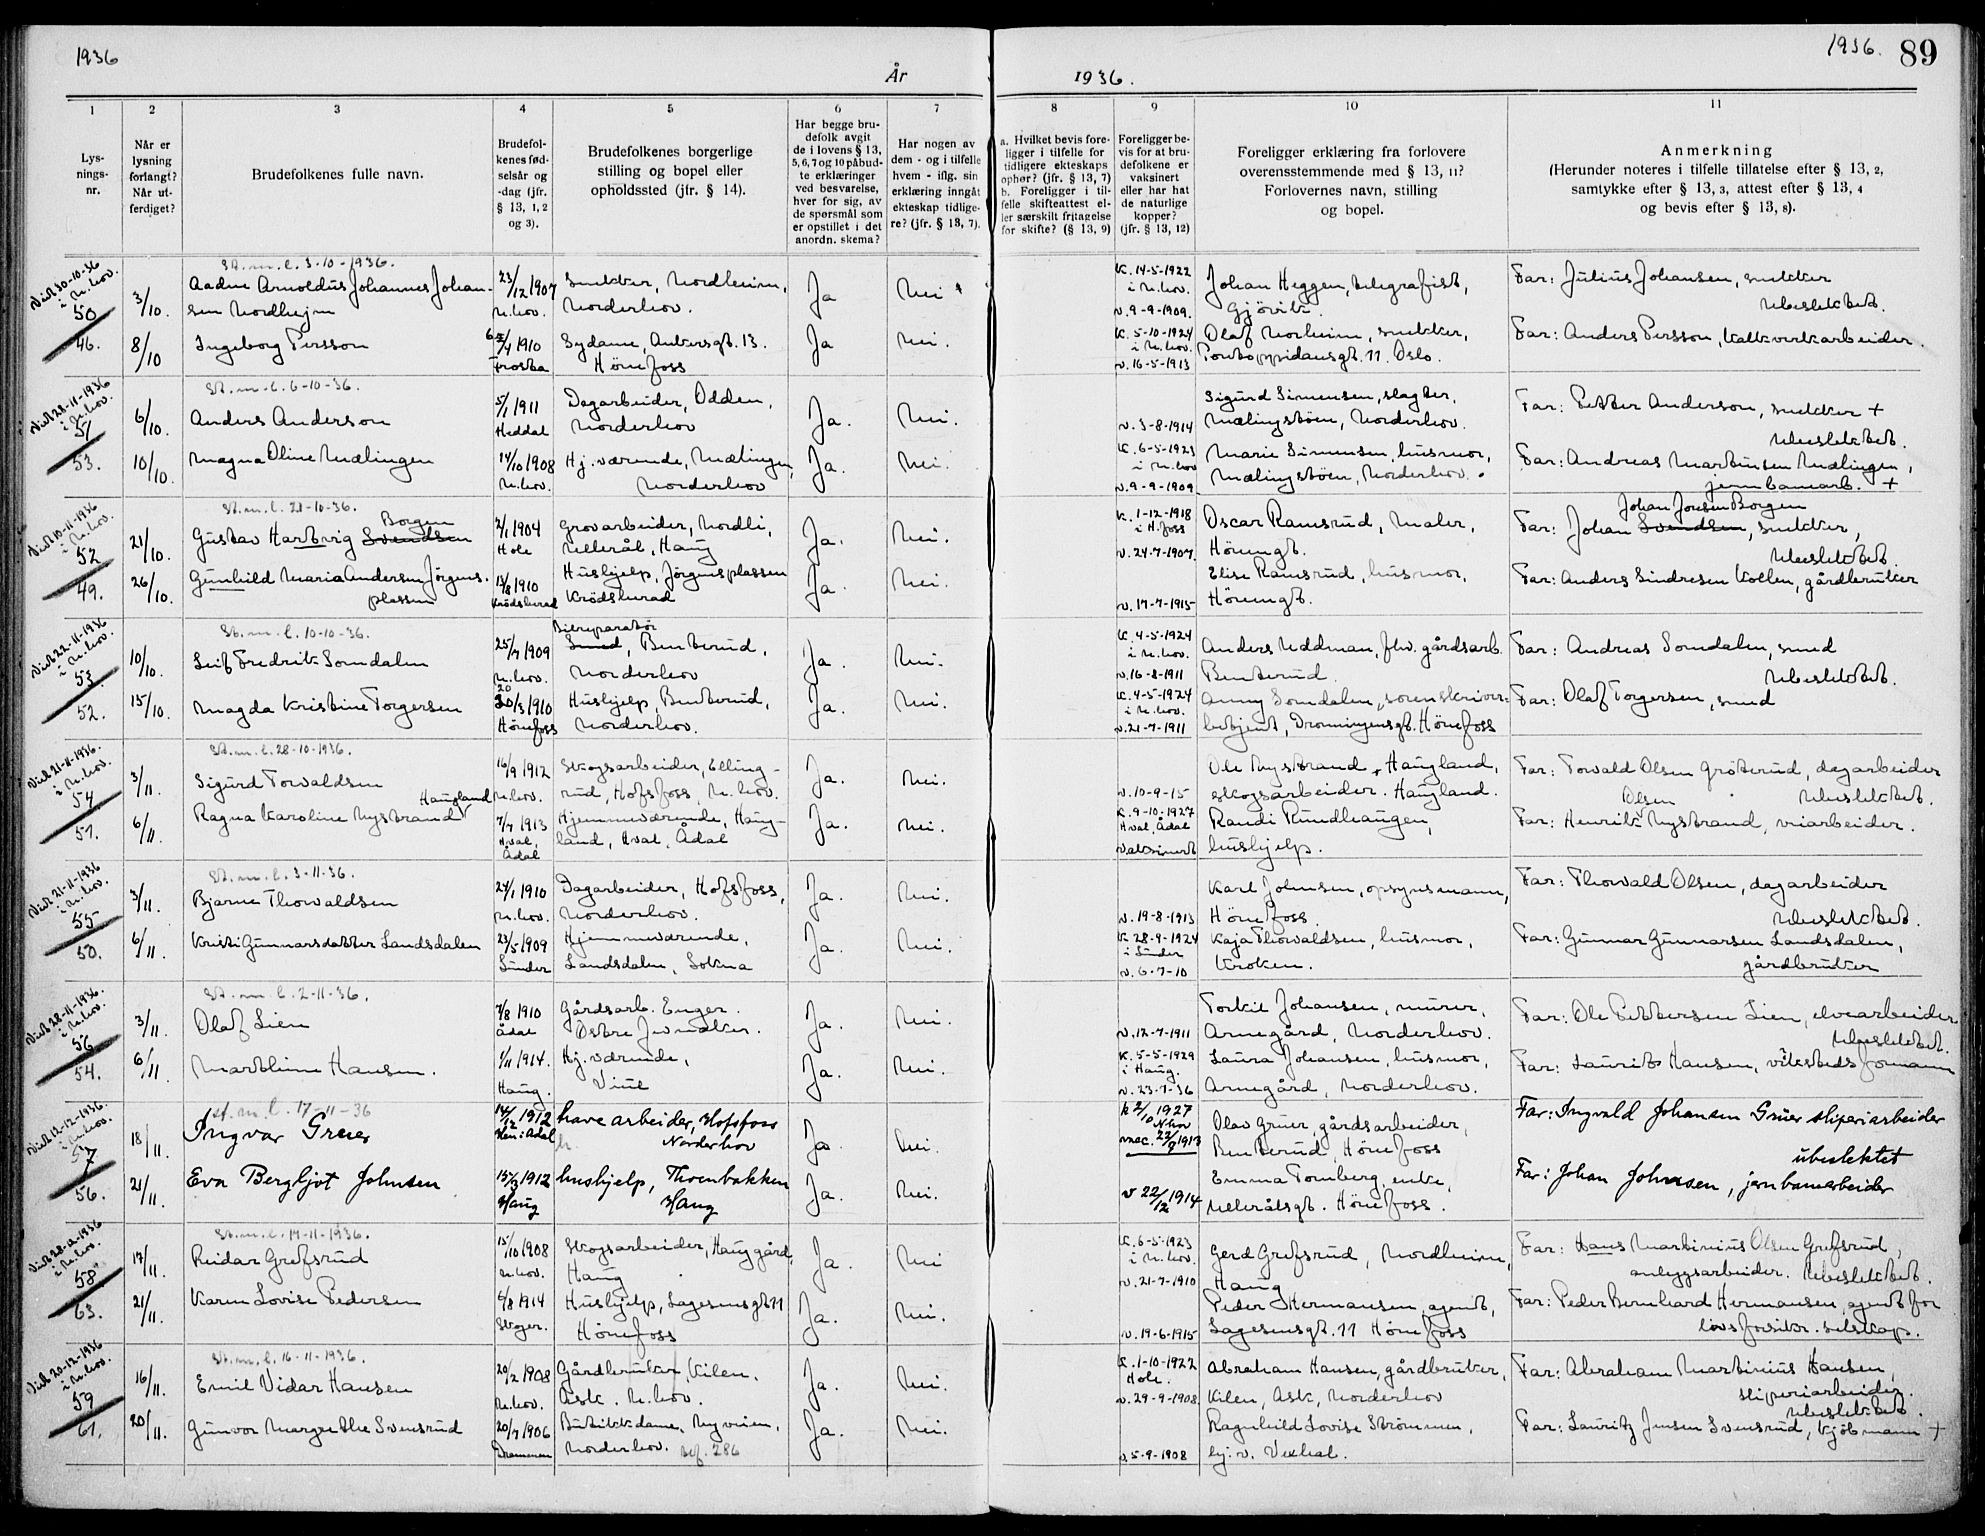 1936
År
1936.
1936.
89
1
2
3
4
5
6
7
8
9
10
11
Lys-
nings-
nr.
Når er
lysning
forlangt?
Når ut-
ferdiget?
Brudefolkenes fulle navn.
Brudefol-
kenes fød-
selsår og
-dag (jfr.
§ 13, 1, 2
og 3).
Brudefolkenes borgerlige
stilling og bopel eller
opholdssted (jfr. § 14).
Har begge bru-
defolk avgit
de i lovens § 13,
5, 6, 7 og 10 påbud-
te erklæringer
ved besvarelse,
hver for sig, av
de spørsmål som
er opstillet i det
anordn. skema?
Har nogen av
dem - og i tilfelle
hvem - iflg. sin
erklæring inngått
ekteskap tidlige-
re? (jfr. § 13, 7).
a. Hvilket bevis fore-
ligger i tilfelle for
tidligere ekteskaps
ophør? (jfr. § 13, 7)
b. Foreligger i til-
felle skifteattest el-
ler særskilt fritagelse
for skifte? (§ 13, 9)
Foreligger be-
vis for at bru-
defolkene er
vaksinert
eller har hat
de naturlige
kopper?
(jfr. § 13, 12)
Foreligger erklæring fra forlovere
overensstemmende med § 13, 11?
Forlovernes navn, stilling
og bopel.
Anmerkning
(Herunder noteres i tilfelle tillatelse efter § 13, 2,
samtykke efter § 13, 3, attest efter § 13, 4
og bevis efter § 13, 8).
Viet 30-10-36
i N.hov.
50
46.
3/10.
8/10
St.m.l. 3-10-1936.
Aadne Arnoldus Johannes Johan-
sen Nordhejm
23/12 1907
N.hov.
Snekker, Nordheim,
Norderhov.
Ja
Nei
K. 14-5-1922
i N.hov.
v. 9-9-1909.
Johan Heggen, telegrafist,
Gjövik.
Far: Julius Johansen, snekker
Ubeslektet.
Ingeborg Persson
1910
Frosta
Sydame, Ankersgt. 13.
Hönefoss
Ja
Nei.
K. 5-10-1924
i N.hov.
v. 16-5-1913
Olaf Norheim, snekker,
Pontoppidansgt. 11. Oslo.
Far: Anders Persson, Kalkverkarbeider.
Viet 28-11-1936
i N.hov.
51
53.
6/10.
10/10.
St.m.l. 6-10-36.
Anders Anderson
5/1 1911
Heddal
Dagarbeider, Odden,
Norderhov
Ja.
Nei.
v. 3-8-1914
Sigurd Simensen, slagter,
Mælingstöen, Norderhov.
Far: Petter Anderson, snekker +
Ubeslektet.
Magna Oline Mælingen
14/10 1908
N.hov.
Hj. værende, Mælingen,
Norderhov
Ja.
Nei.
K. 6-5-1923
i N.hov
v. 9-9-1909.
Marie Simensen, husmor,
Mælingstöen, Norderhov.
Far: Andreas Martinsen Mælingen,
jernbanearb. +
Viet 10-11-1936
i N.hov.
52
49.
21/10.
26/10.
St.m.l. 21-10-36.
Borgen
Gustav Hartvig Svendsen
2/1 1904
Hole
Grovarbeider, Nordli,
Ullerål, Haug
Ja.
Nei.
K. 1-12-1918
i H.foss
v. 24-7-1907.
Oscar Ramsrud, Maler,
Hönengt.
Johan Jonsen Borgen
Far: Johan Svendsen, snekker,
Ubeslektet.
Gunhild Maria Andersen Jörgens-
plassen
13/8 1910
Krödsherad
Hushjelp, Jörgensplassen
Krödsherad
Ja.
Nei.
v. 17-7-1915
Elise Ramsrud, husmor,
Hönengt.
Far: Anders Sindresen Kollen, gårdbruker
Viet 22-11-1936
i N.hov.
53.
52.
10/10.
15/10.
St.m.l. 10-10-36.
Leif Fredrik Somdalen
25/7 1909
N.hov.
Bilreparatör
Smed, Benterud,
Norderhov
Ja.
Nei.
K. 4-5-1924
i N.hov.
v. 16-8-1911
Anders Uddman, fhv. gårdsarb.
Benterud.
Far: Andreas Somdalen, smed
Ubeslektet.
Magda Kristine Torgersen
20/3 1910
Hönefoss
Hushjelp, Benterud,
Norderhov.
Ja.
Nei.
K. 4-5-1924
i N.hov.
v. 21-7-1911
Anny Somdalen, sorenskriver-
betjent, Dronningensgt. Hönefoss
Far: Olaf Torgersen, smed
Viet 21-11-1936.
i N.hov.
54
51.
3/11.
6/11.
St.m.l. 28-10-1936.
Sigurd Torvaldsen
16/9 1912
N.hov.
Skogsarbeider, Elling-
rud, Hofsfoss, N.hov.
Ja.
Nei.
v. 10-9-15
Ole Nystrand, Haugland,
skogsarbeider. Haugland.
Far: Torvald Olsen Gröterud, dagarbeider
Ubeslektet.
Haugland
Ragna Karoline Nystrand
7/7 1913
Hval, Ådal
Hjemmeværende, Haug-
land, Hval, Ådal
Ja.
Nei.
K. 9-10-1927
Hval Ådal
Vaksinert
Randi Rundhaugen,
hushjelp.
Olsen
Far: Henrik Nystrand, veiarbeider.
Viet 21-11-1936
i N.hov.
55
50.
3/11.
6/11.
St.m.l. 3-11-36.
Bjarne Thorvaldsen
24/1 1910
N.hov.
Dagarbeider, Hofsfoss,
Norderhov.
Ja.
Nei.
v. 19-8-1913
Karl Johnsen, opsynsmann,
Hönefoss.
Far: Thorvald Olsen, dagarbeider
Ubeslektet.
Kristi Gunnarsdatter Landsdalen
23/5 1909
Lunder
Hjemmeværende,
Landsdalen, Sokna
Ja.
Nei.
K 28-9-1924
i Lunder
v. 6-7-10
Kaja Thorvaldsen, husmor,
Kroken.
Far: Gunnar Gunnarsen Landsdalen,
gårdbruker
Viet 28-11-1936.
i N.hov.
56
54.
3/11.
6/11
St.m.l. 2-11-36.
Olaf Lien
7/8 1910
Ådal
Gårdsarb. Enger.
Østre Jevnaker.
Ja.
Nei.
v. 12-7-1911
Torkil Johansen, murer,
Arnegård, Norderhov.
Far: Ole Pettersen Lien, elvearbeider
Ubeslektet.
Marthine Hansen.
1/11 1914.
Haug.
Hj. værende,
Viul
Ja.
Nei.
K. 5-5-1929
i Haug.
v. 23-7-36
Laura Johansen, husmor,
Arnegård, Norderhov.
Far: Laurits Hansen, vöksteds formann
Viet 12-12-1936.
i N.hov.
57
56.
18/11.
21/11.
St.m.l. 17-11-36
Ingvar Gruer
14/12 1912
Hen i Ådal
have arbeider, Hofsfoss
Norderhov
Ja.
Nei.
k 2/10 1927
N.hov
vac. 22/9 1913
Olav Gruer, gårdsarbeider,
Benterud, Hönefoss
Far: Ingvald Johansen Gruer sliperiarbeider
ubeslektet
Eva Bergljot Johnsen
15/3 1912
Haug
hushjelp, Thoenbakken
Haug
Ja.
Nei.
v 22/12 1914
Emma Tomberg, enke,
Ullerålsgt. Hönefoss.
Far: Johan Johnsen, jernbanearbeider
Viet 28-12-1936
i N.hov.
58
63.
17/11.
21/11.
St.m.l. 17-11-1936.
Reidar Grefsrud
15/10 1908
N.hov.
Skogsarbeider, Hauggård,
Haug
Ja.
Nei
K. 6-5-1923
i N.hov.
v. 21-7-1910
Gerd Grefsrud, Nordheim,
Haug
Far: Hans Martinius Olsen Grefsrud,
anleggsarbeider. Ubeslektet.
Karen Lovise Pedersen
6/8 1914
Skoger.
Hushjelp, Lagesensgt 11
Hönefoss
Ja.
Nei.
v. 19-6-1915
Peder Hermansen, agent,
Lagesensgt. 11 Hönefoss
Far: Peder Bernhard Hermansen, agent for
livsforsikr. selskap.
Viet 20-12-1936
i N.hov.
59
61.
16/11.
20/11.
St.m.l. 16-11-1936.
Emil Vidar Hansen
20/2 1908
N.hov.
Gårdbruker, Kilen,
Ask. N.hov.
Ja.
Nei.
K. 1-10-1922
Hole.
v. 29-9-1908.
Abraham Hansen, gårdbruker,
Kilen, Ask, Norderhov
Far: Abraham Martinius Hansen,
sliperiarbeider.
Ubeslektet.
Gunvor Margrethe Svensrud
20/7 1906
Drammen
Butikkdame, Nyveien,
Norderhov. 286
Ja.
Nei.
v. 5-9-1908
Ragnhild Lovise Strömmen,
hj. v. Vexhal.
Far: Lauritz Jensen Svensrud, kjöbmann +